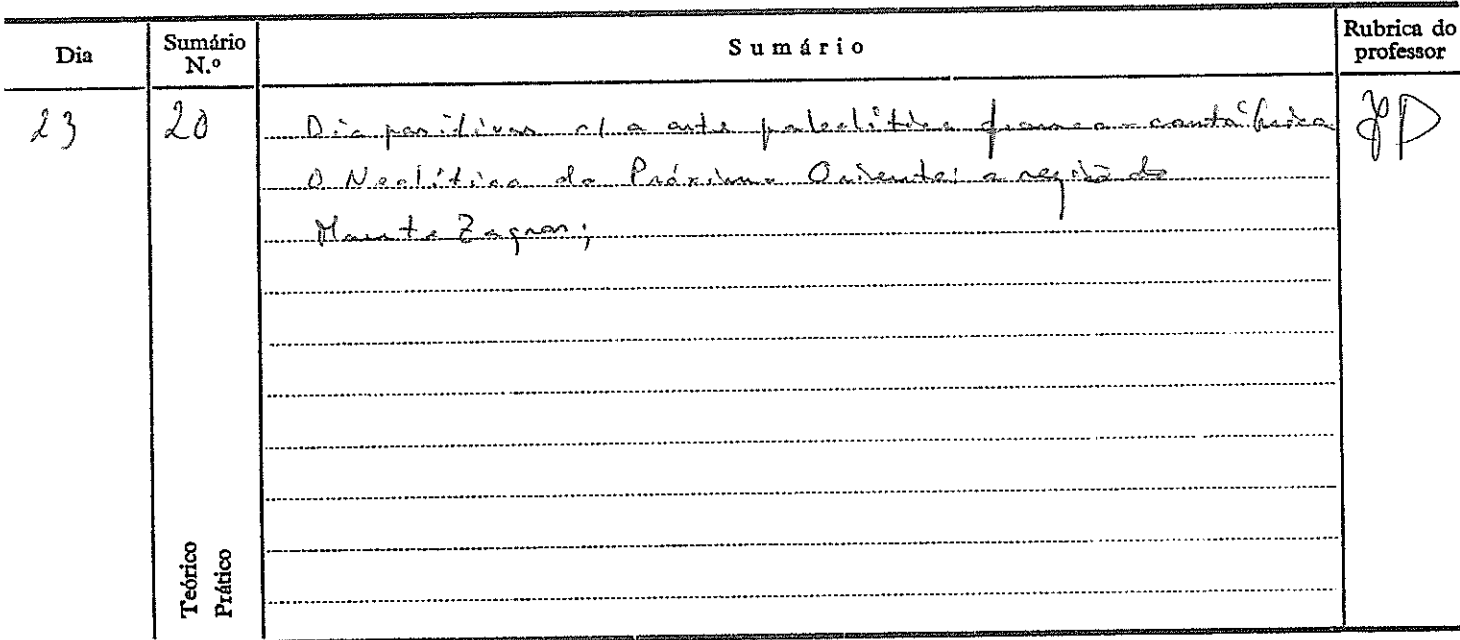 Dia
Sumário N.º
Sumário
Rubrica do professor
23
20
Diapositivos c/ a arte paleolítica franco-cantábrica
O Neolítico do Próximo Oriente: a região do
Monte Zagros;
Teórico
Prático